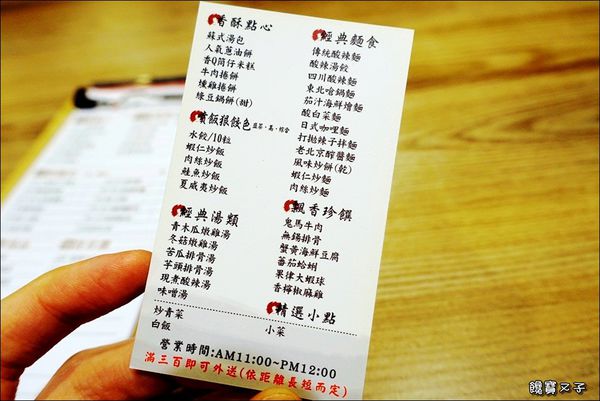 香酥點心
蘇式湯包
人氣蔥油餅
香Q筒仔米糕
牛肉捲餅
燻雞捲餅
綠豆鍋餅(甜)
飯狠餃色
水餃/10粒
蝦仁炒飯
肉絲炒飯
鮭魚炒飯
夏威夷炒飯
經典湯類
青木瓜燉雞湯
冬菇燉雞湯
苦瓜排骨湯
芋頭排骨湯
現煮酸辣湯
味噌湯
經典麵食
傳統酸辣麵
酸辣湯餃
四川酸辣麵
東北嗆鍋麵
茄汁海鮮燴麵
酸白菜麵
日式咖哩麵
打拋辣子拌麵
老北京醡醬麵
風味炒餅(乾)
蝦仁炒麵
肉絲炒麵
飄香珍饌
鬼馬牛肉
無錫排骨
蟹黃海鮮豆腐
蕃茄蛤蜊
果律大蝦球
香檸椒麻雞
精選小點
炒青菜
白飯
小菜
營業時間:AM11:00~PM12:00
滿三百即可外送(依距離長短而定)
饞寶叉子